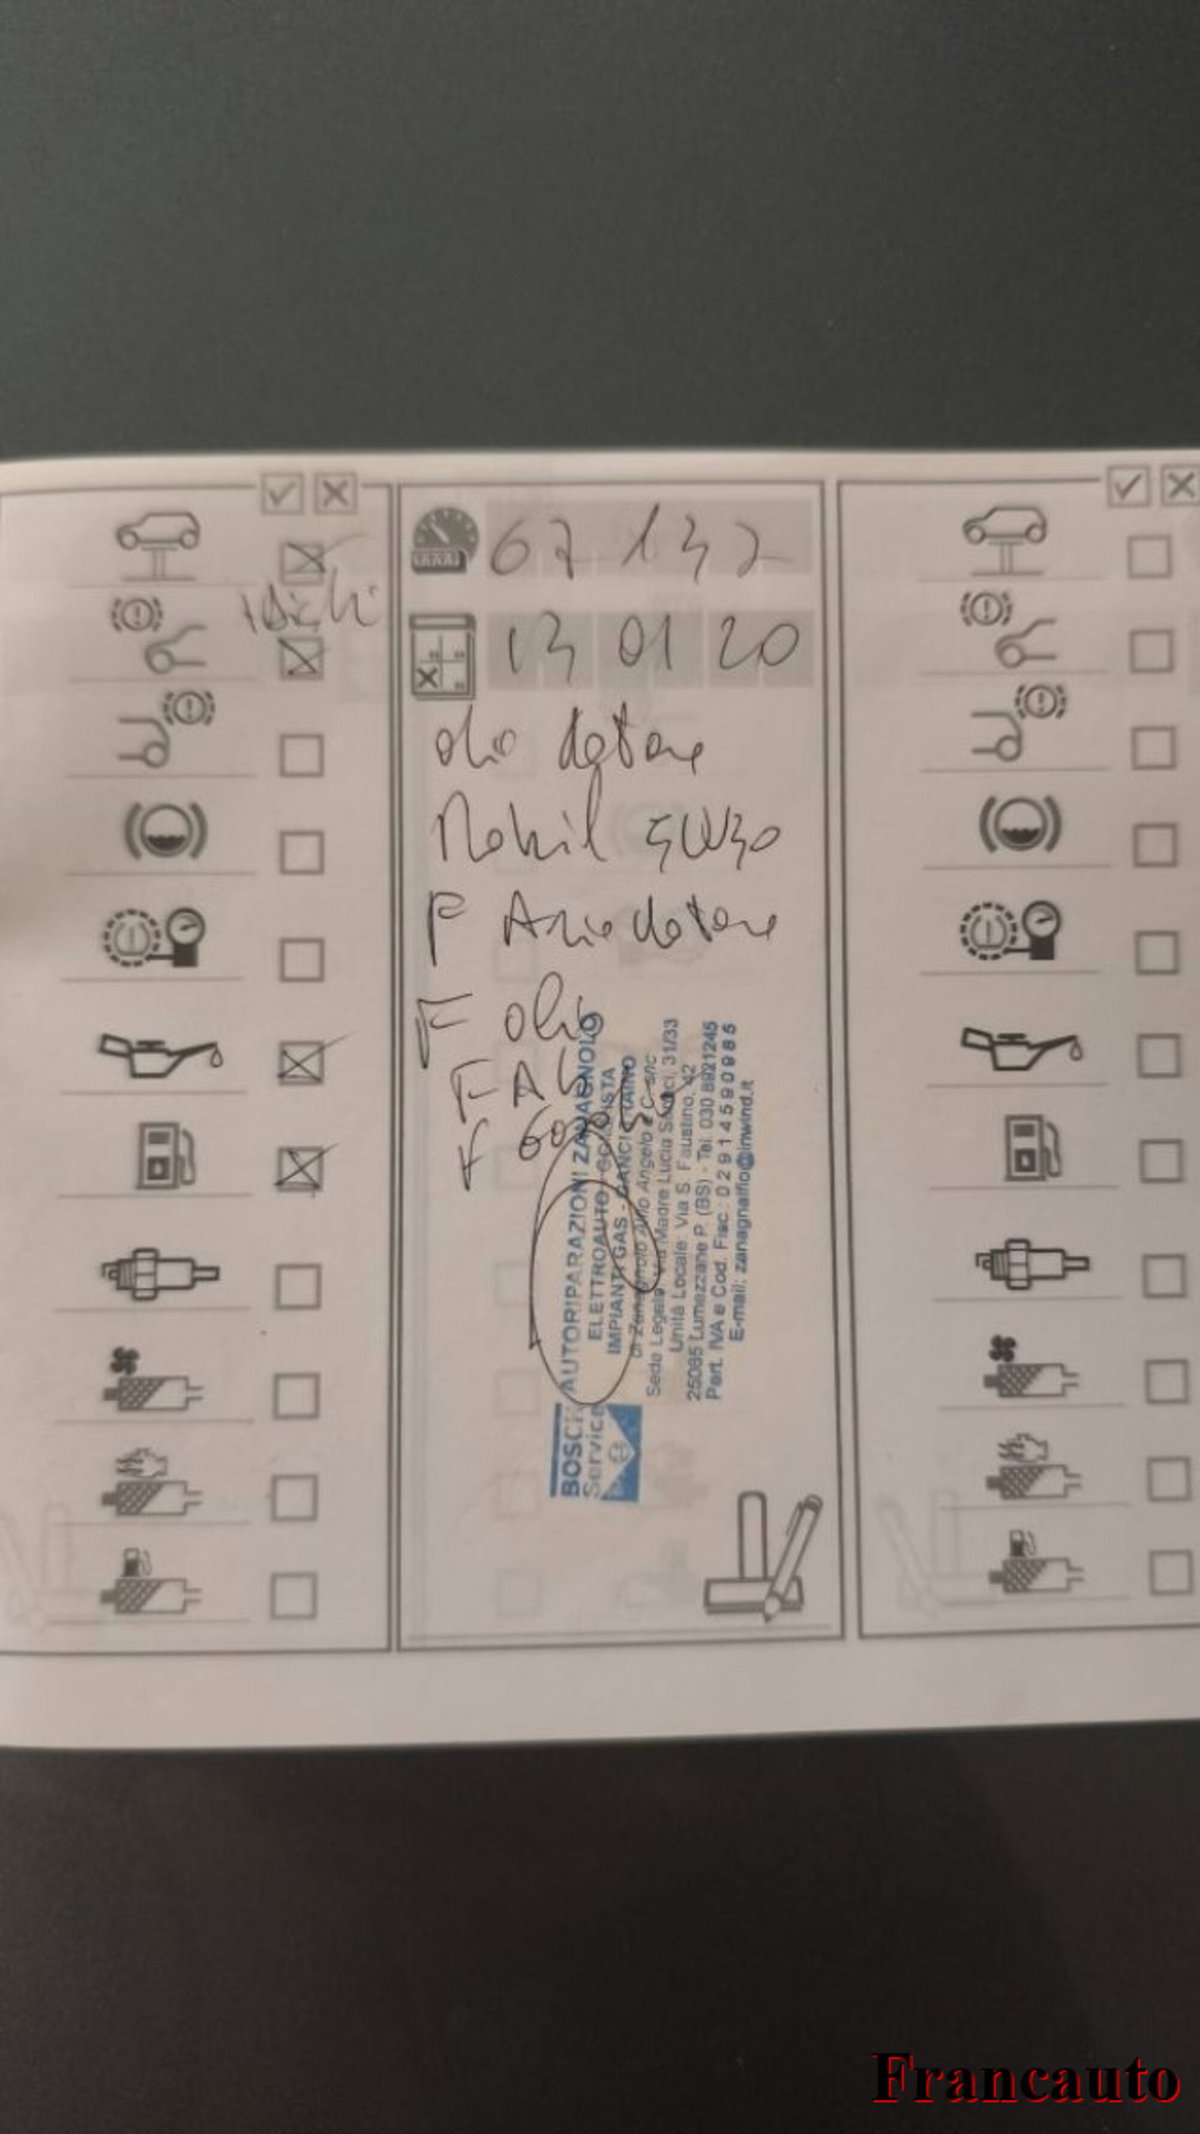 67 132
13 01 20
olio Motore
Mobil 5W30
F Aria Motore
F olio
F A
F
BOSCH
Service
AUTORIPARAZIONI ZANAGNOLO
ELETTROAUTO - GOMMISTA
IMPIANTI GAS - GANCI TRAINO
di Zanagnolo Angelo & C. snc
Sede Legale: Via Madre Lucia 31/33
Unità Locale: Via S. Faustino, 42
25065 Lumezzane P. (BS) - Tel. 030 8921245
Part. IVA e Cod. Fisc.: 02914590985
E-mail: zanagnalfio@inwind.it
Francauto